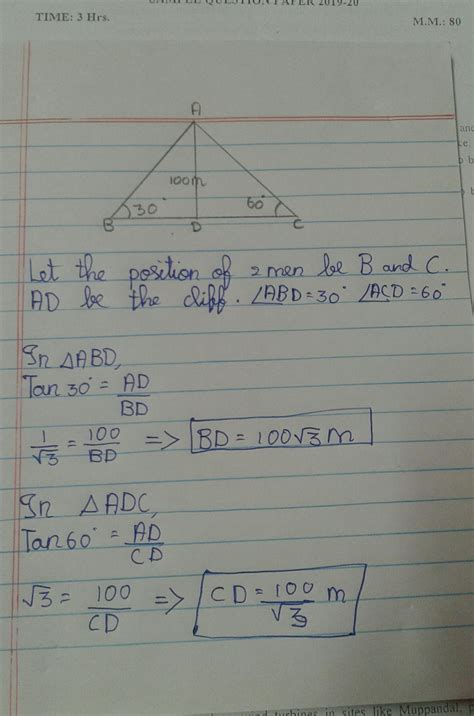 SAMPLE QUESTION PAPER 2019-20
TIME: 3 Hrs. M.M.: 80
A
100m
30° 60°
B D C
Let the position of 2 men be B and C.
AD be the cliff. ∠ABD=30° ∠ACD=60°
In △ABD,
Tan 30° = AD/BD
1/√3 = 100/BD => BD = 100√3 m
In △ADC,
Tan 60° = AD/CD
√3 = 100/CD => CD = 100/√3 m
turbines in sites like Muppandal,